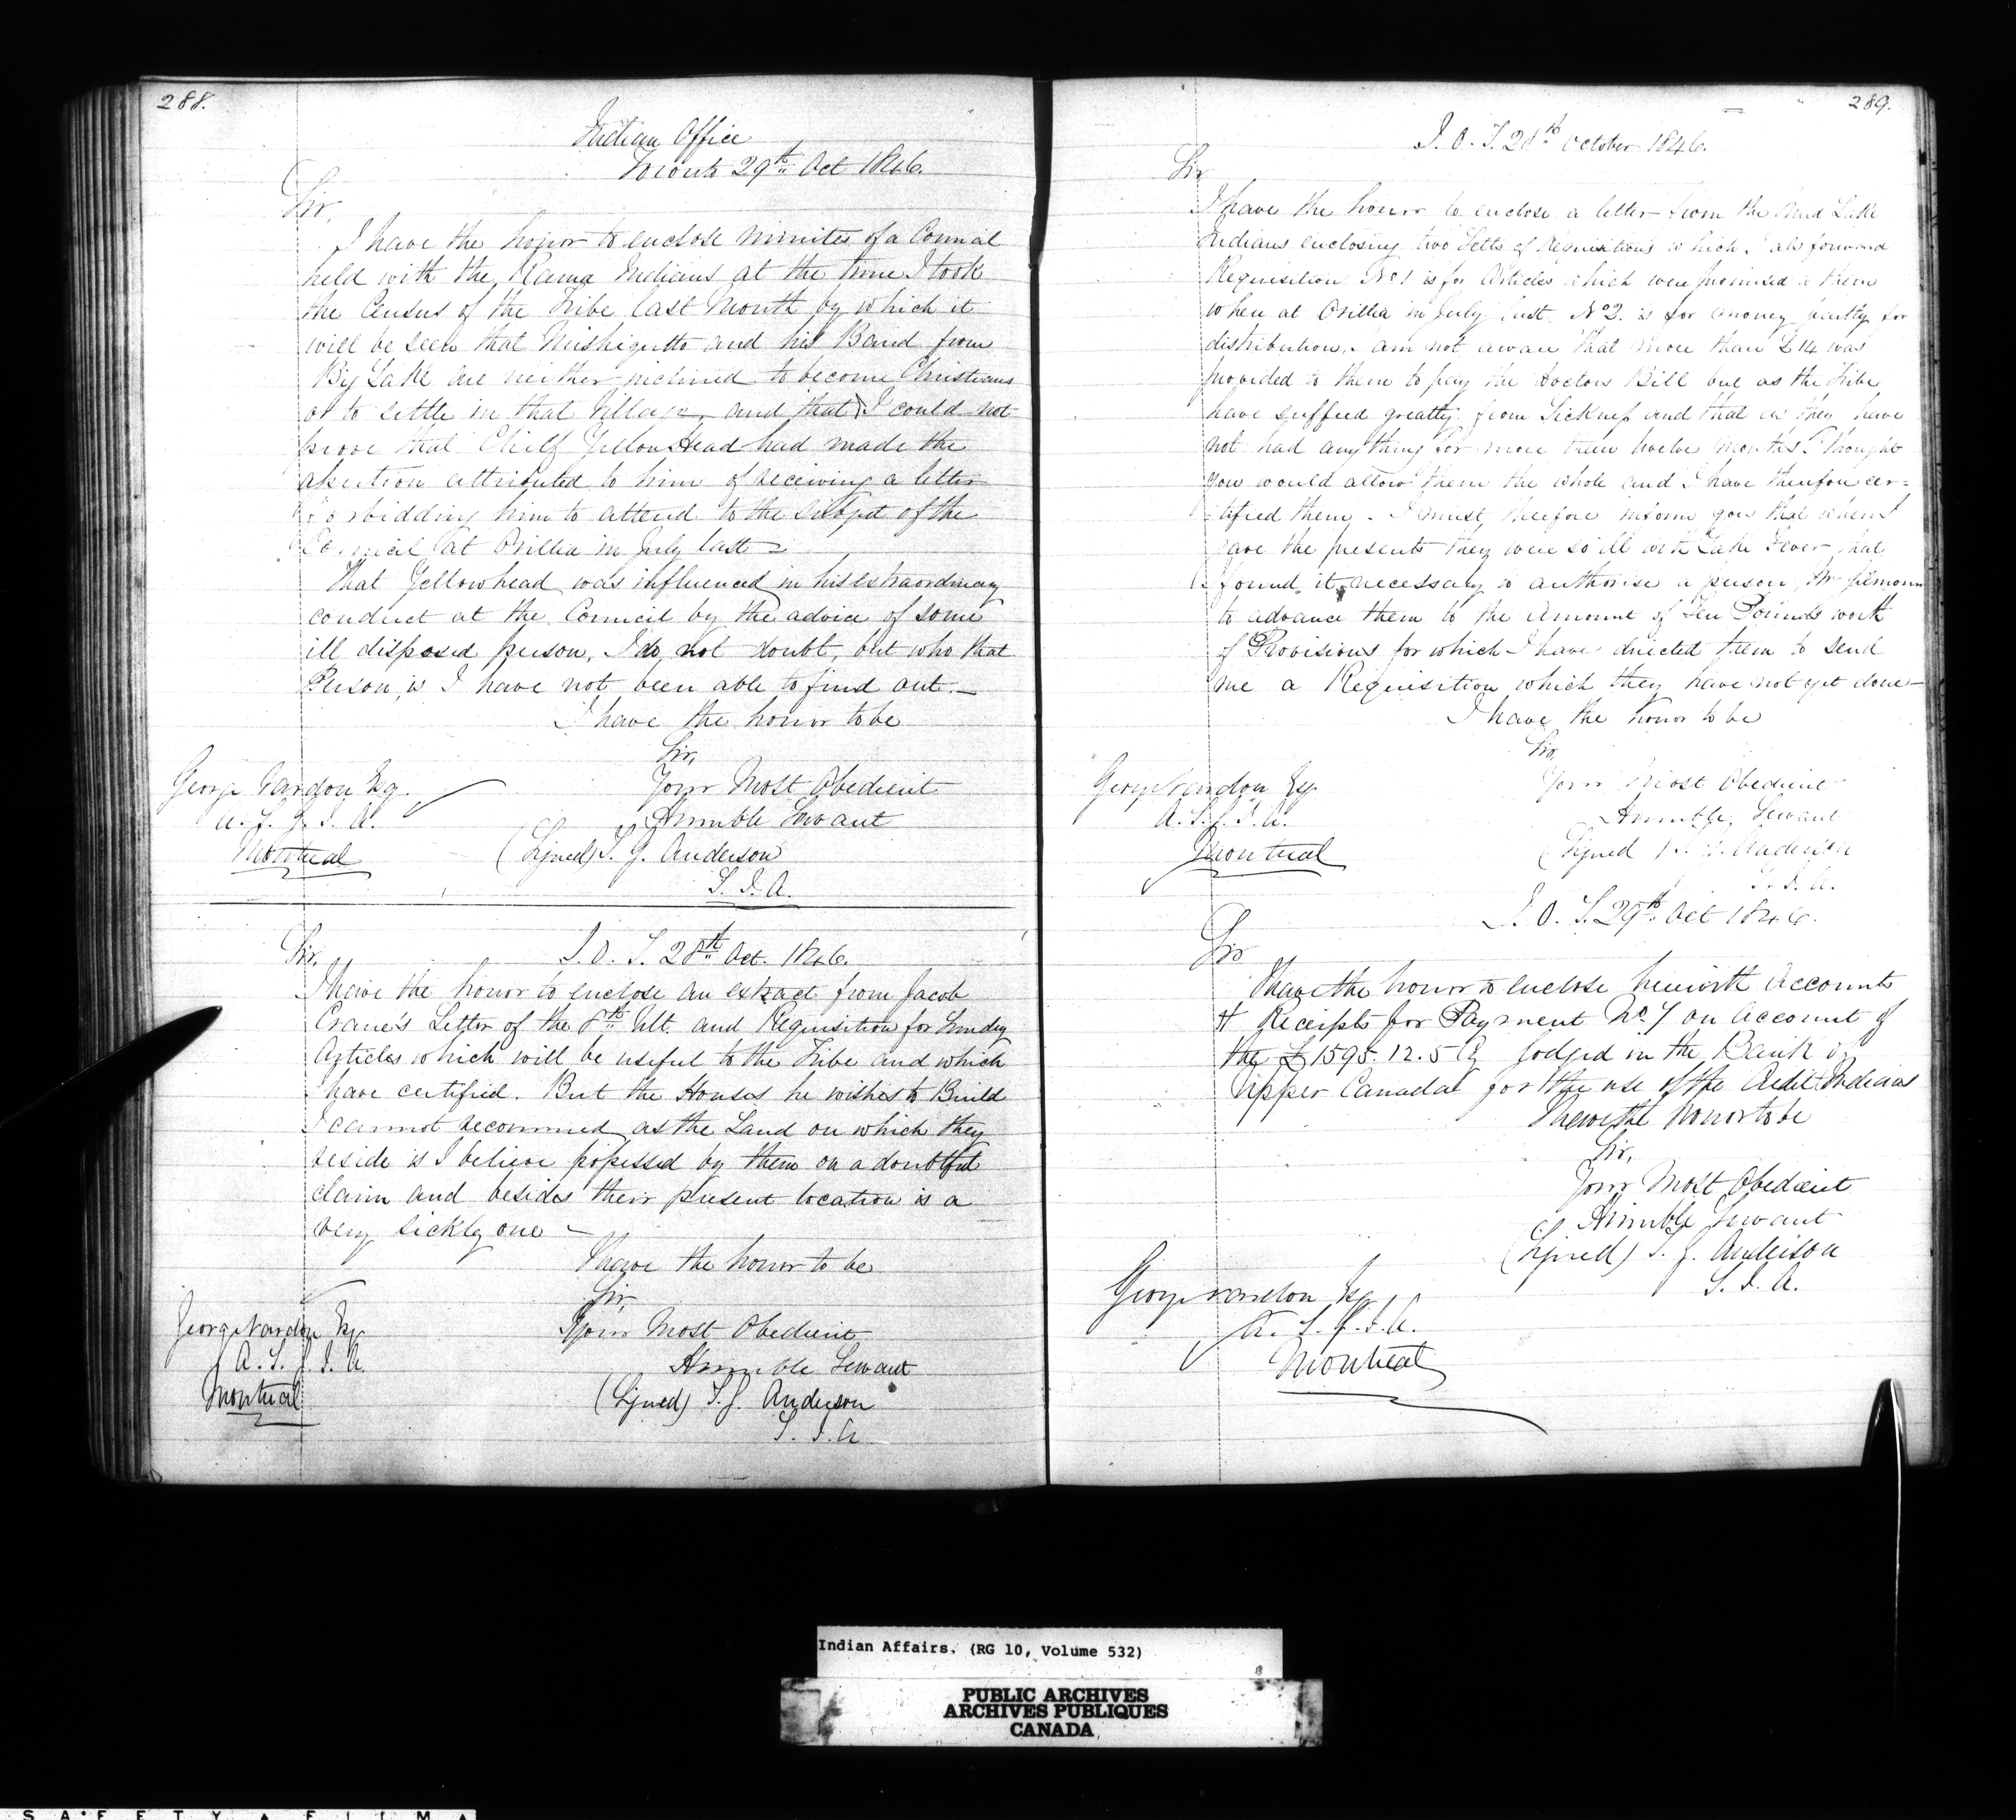 288.
Indian Office
Toronto 29th Oct 1846.
Sir,
I have the honor to enclose minutes of a Council
held with the Rama Indians at the time I took
the Census of the Tribe last Month by which it
will be seen that Mishiquetto and his Band from
Big Lake are neither inclined to become Christians
or to settle in that Village, and that I could not
prove that Chief Yellow Head had made the
assertion attributed to him of receiving a letter
forbidding him to attend to the subject of the
Council at Orillia in July last -
That Yellowhead was influenced in his extraordinary
conduct at the Council by the advice of some
ill disposed person, I do not doubt, but who that
Person is I have not been able to find out. -
I have the honor to be
Sir,
Your Most Obedient
Humble Servant
(Signed) T. G. Anderson
S. I. A.
George Vardon Esq.
A. S. G. I. A.
Montreal
I. O. T. 28th Oct. 1846.
Sir,
I have the honor to enclose an extract from Jacob
Crane's Letter of the 8th Ult. and Requisition for Sundry
Articles which will be useful to the Tribe and which
I have certified. But the Houses he wishes to Build
I cannot recommend as the Land on which they
reside is I believe possessed by them on a doubtful
claim and besides their present location is a
very sickly one -
I have the honor to be
Sir,
Your Most Obedient
Humble Servant
(Signed) T. G. Anderson
S. I. A
George Vardon Esq.
A. S. G. I. A.
Montreal
289.
I. O. T. 28th October 1846.
Sir
I have the honor to enclose a letter from the Mud Lake
Indians enclosing two Setts of Requisitions which I also forward
Requisition No 1 is for Articles which were promised to them
when at Orillia in July last. No 2. is for money partly for
distribution. am not aware that more than £14 was
provided to them to pay the Doctors Bill but as the Tribe
have suffered greatly from Sickness and that as they have
not had anything for more than twelve months I thought
you would allow them the whole and I have therefore cer=
tified them. I must therefore inform you that when I
gave the presents they were so ill with Lake Fever that
I found it necessary to authorise a person,
to advance them to the Amount of Ten Pounds worth
of Provisions for which I have directed them to send
me a Requisition which they have not yet done -
I have the honor to be
Sir,
Your Most Obedient
Humble Servant
(Signed) T. G. Anderson
S. I. A.
George Vardon Esq.
A. S. G. I. A.
Montreal
I. O. T. 29th Oct 1846.
Sir
I have the honor to enclose herewith Accounts
& Receipts for Payment No. 7 on Account of
the £1595.12.5 Cy lodged in the Bank of
Upper Canada for the use of the Credit Indians
I have the honor to be
Sir,
Your Most Obedient
Humble Servant
(Signed) T. G. Anderson
S. I. A.
George Vardon Esq.
A. S. G. I. A.
Montreal
Indian Affairs. (RG 10, Volume 532)
PUBLIC ARCHIVES
ARCHIVES PUBLIQUES
CANADA
SAFETY FILM